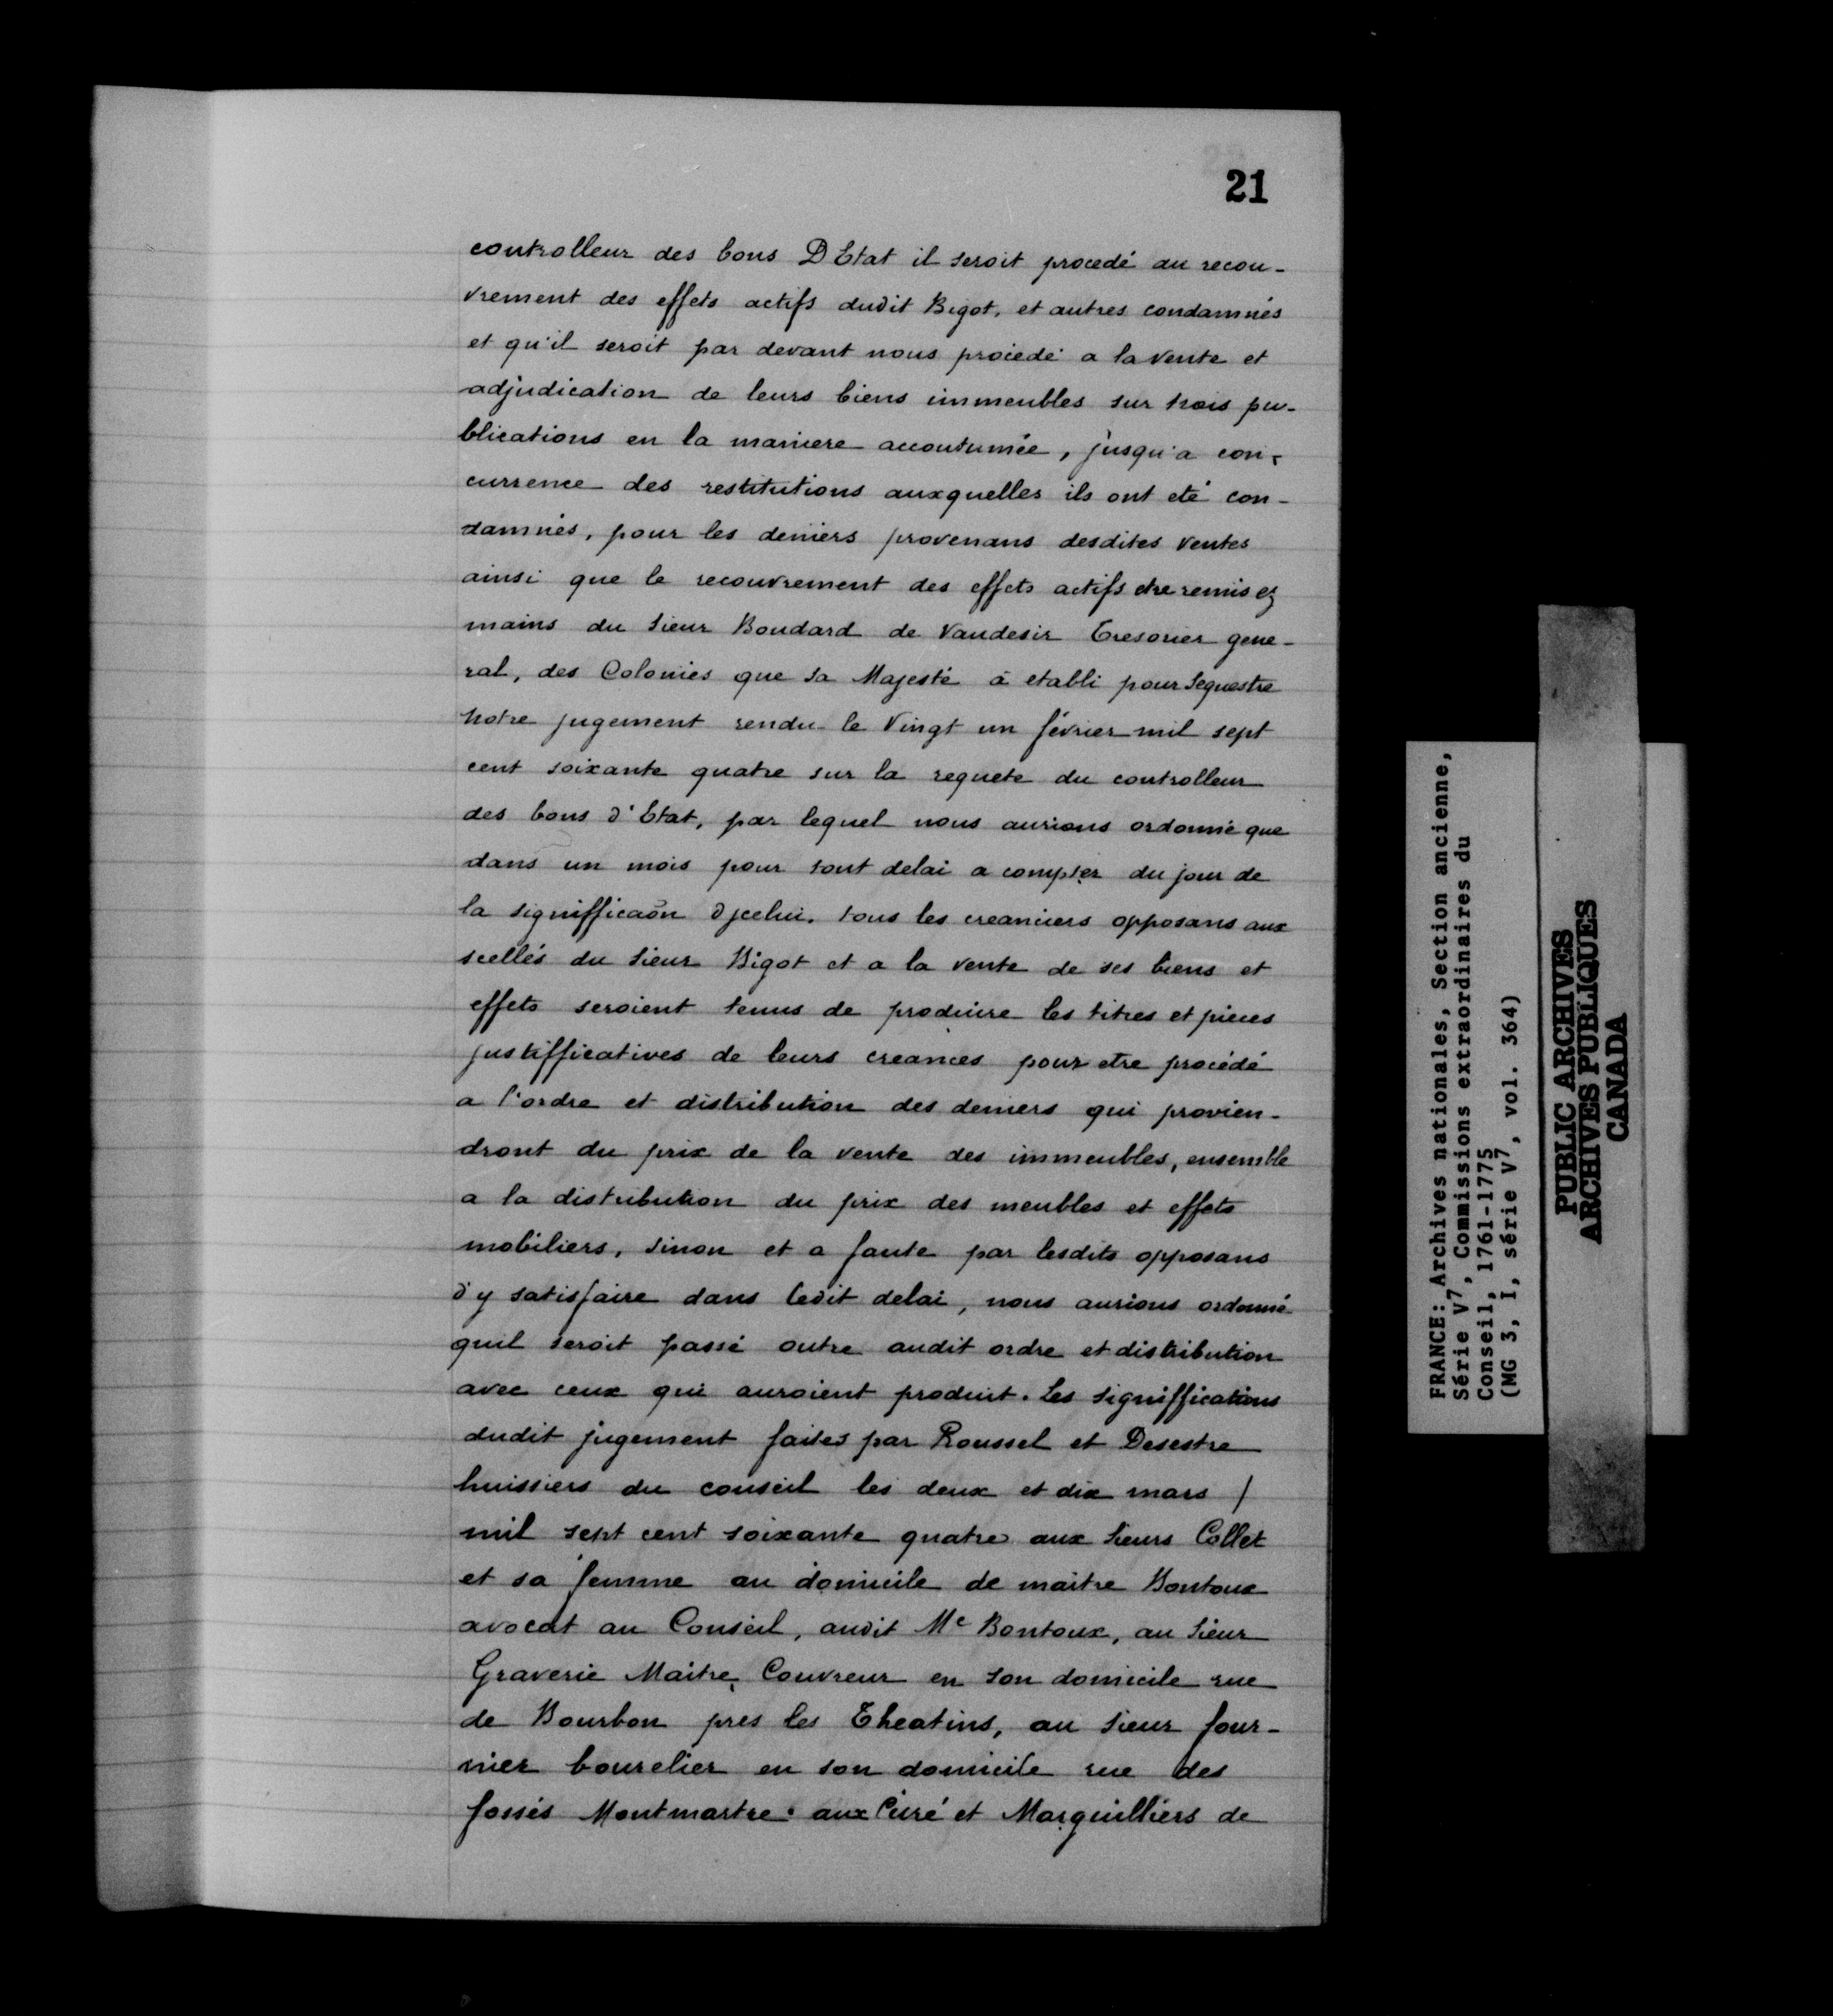 21
controlleur des bons D Etat il seroit procedé au recou-
vrement des effets actifs dudit Bigot, et autres condamnés
et qu'il seroit par devant nous procédé a la vente et
adjudication de leurs biens immeubles sur trois pu-
blications en la maniere accoutumée, jusqu'a con-
currence des restitutions auxquelles ils ont eté con-
damnés, pour les deniers provenans desdites ventes
ainsi que le recouvrement des effets actifs etre remis ez
mains du Sieur Boudard de Vaudesir Tresorier gene-
ral, des Colonies que sa Majesté à etabli pour Sequestre
Notre jugement rendu le Vingt un février mil sept
cent soixante quatre sur la requete du controlleur
des bons d'Etat, par lequel nous aurions ordonné que
dans un mois pour tout delai a compter du jour de
la signifficaõn dycelui. tous les creanciers opposans aux
scellés du Sieur Bigot et a la vente de ses biens et
effets seroient tenus de produire les titres et pieces
justifficatives de leurs creances pour etre procédé
a l'ordre et distribution des deniers qui provien-
dront du prix de la vente des immeubles, ensemble
a la distribution du prix des meubles et effets
mobiliers, sinon et a faute par lesdits opposans
d'y satisfaire dans ledit delai, nous aurions ordonné
quil seroit passé outre audit ordre et distribution
avec ceux qui auroient produit. Les signiffications
dudit jugement faites par Roussel et Desestre
huissiers du conseil les deux et dix mars /
mil sept cent soixante quatre aux Sieurs Collet
et sa femme au domicile de maitre Bontoux
avocat au Conseil, audit Me Bontoux, au Sieur
Graverie Maitre Couvreur en son domicile rue
de Bourbon pres les Theatins, au Sieur four-
nier bourelier en son domicile rue des
fossés Montmartre. aux Curé et Marguilliers de
FRANCE: Archives nationales, Section ancienne,
Série V7, Commissions extraordinaires du
Conseil, 1761-1775
(MG 3, I, série V7, vol. 364)
PUBLIC ARCHIVES
ARCHIVES PUBLIQUES
CANADA